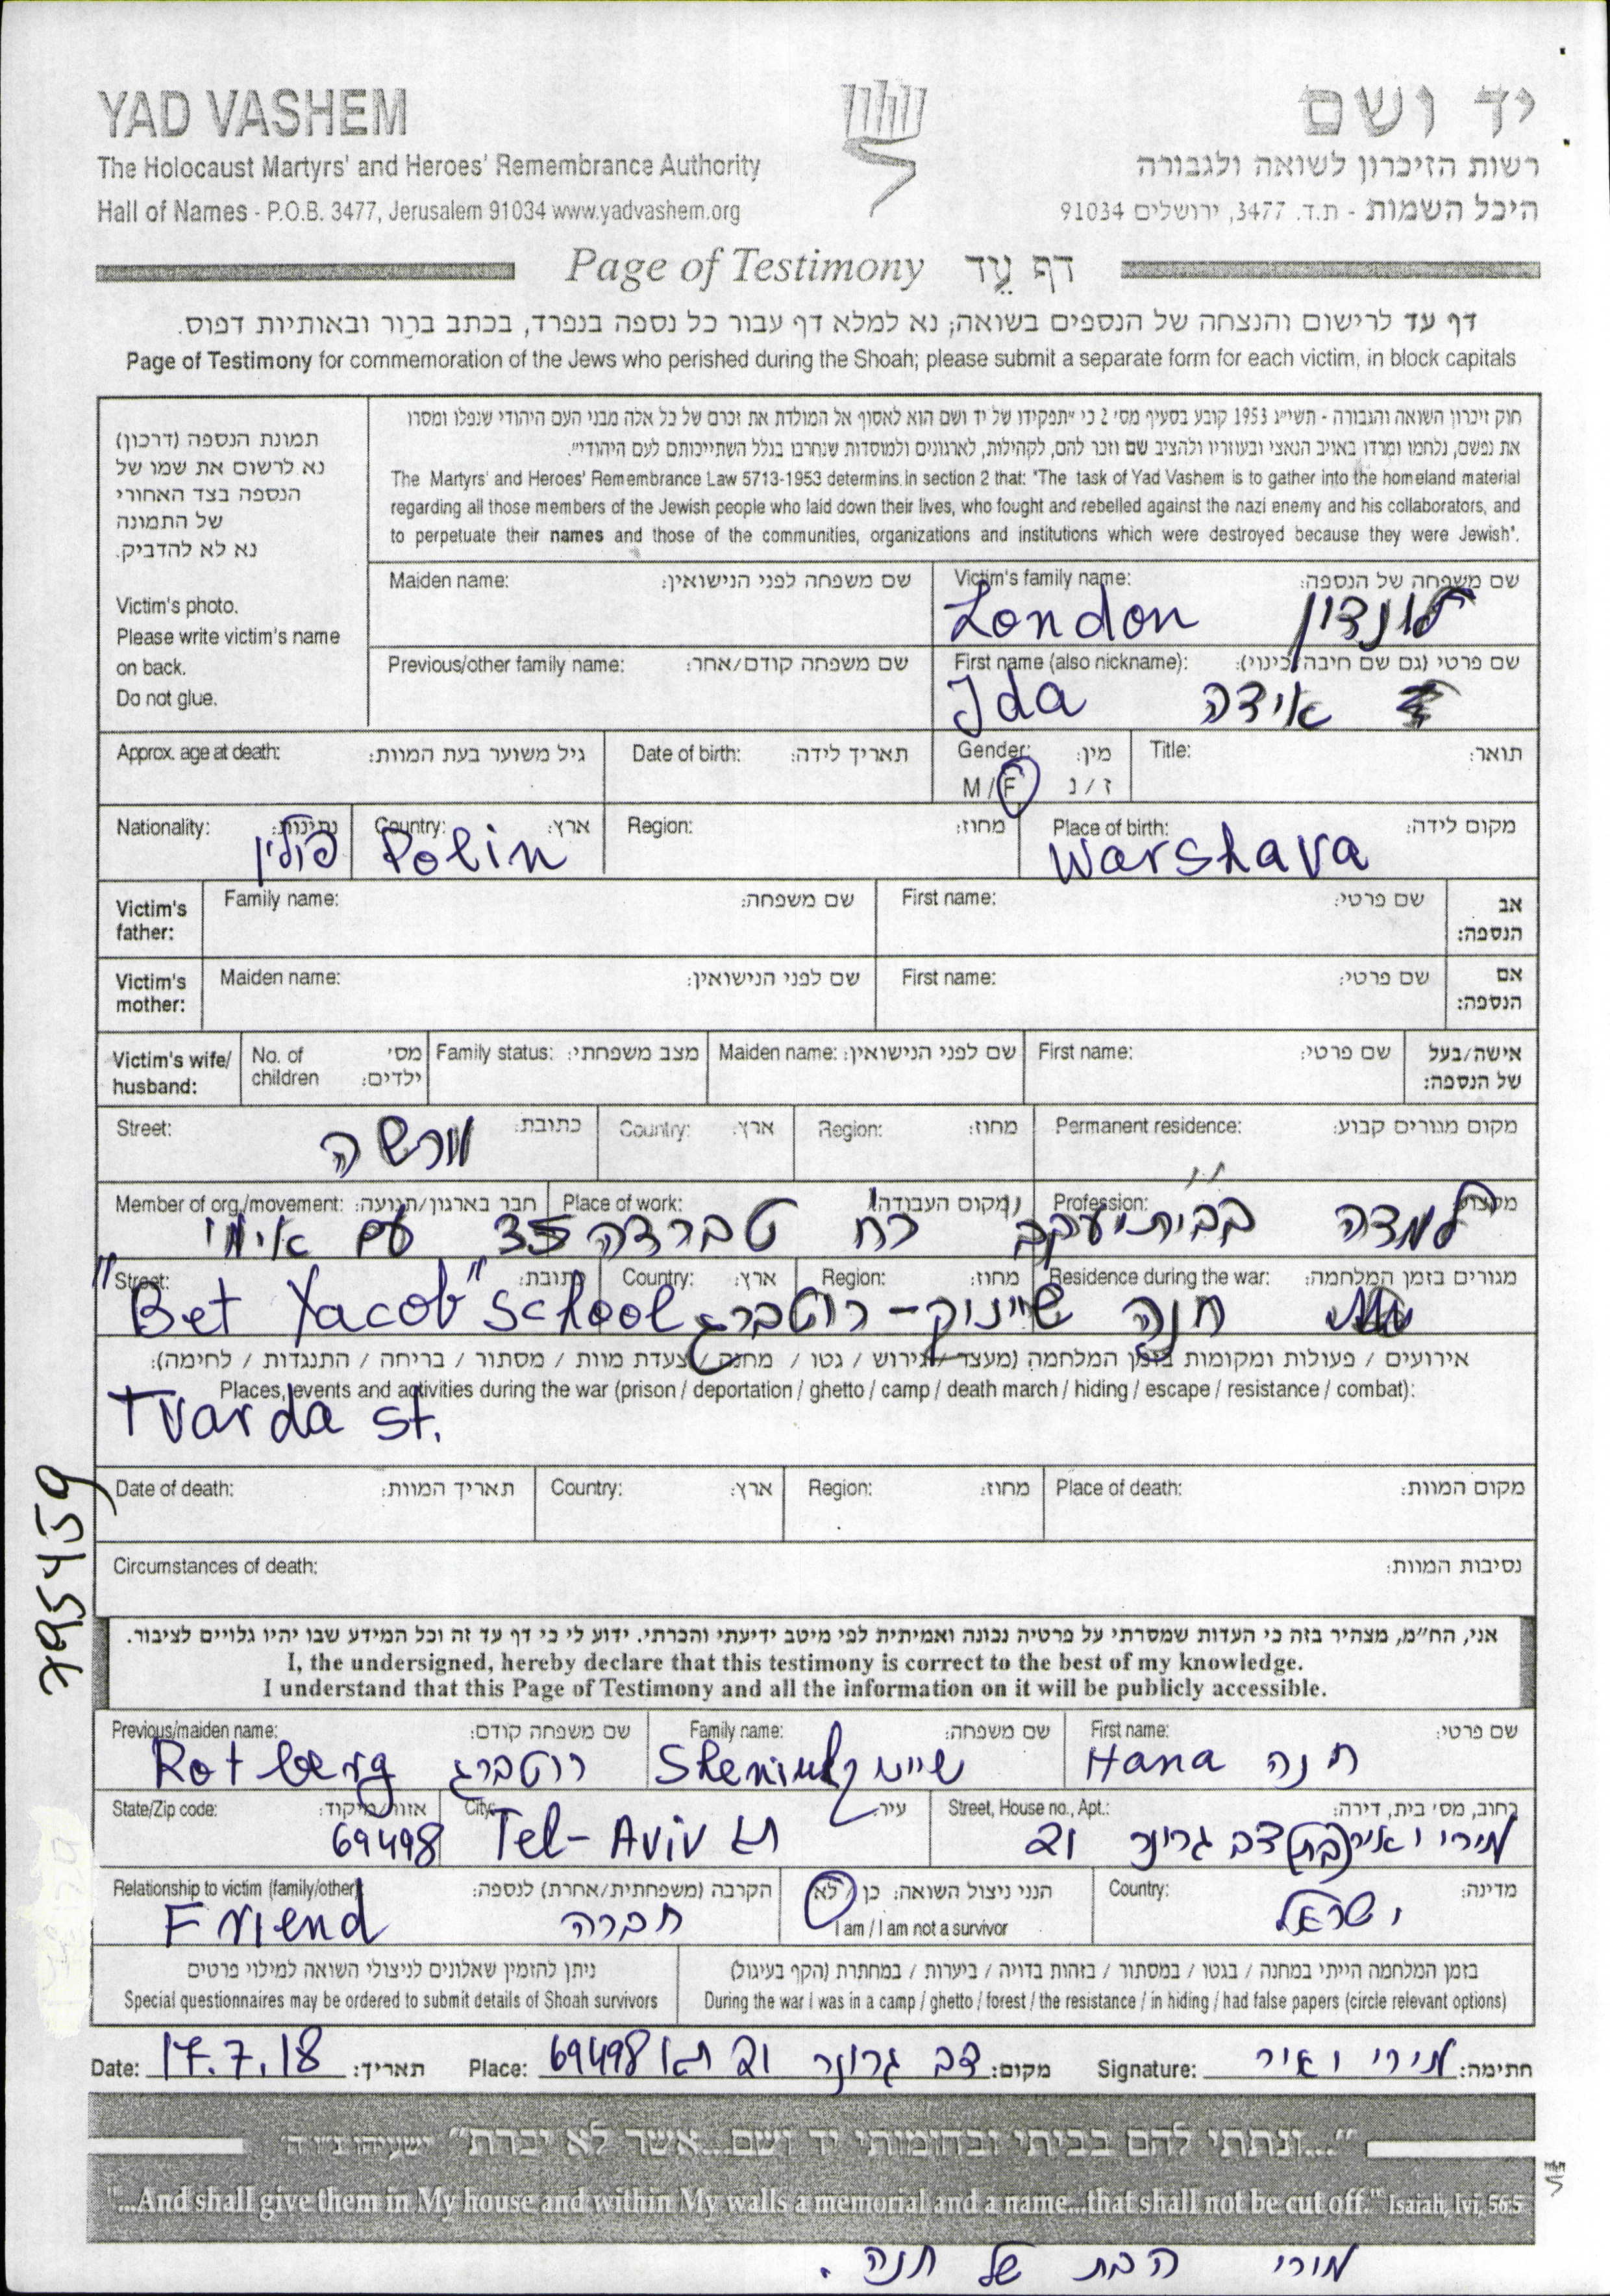 YAD VASHEM
יד ושם
The Holocaust Martyrs' and Heroes' Remembrance Authority
רשות הזיכרון לשואה ולגבורה
Hall of Names - P.O.B. 3477, Jerusalem 91034 www.yadvashem.org
היכל השמות - ת.ד. 3477, ירושלים 91034
Page of Testimony דף עֵד
דף עד לרישום והנצחה של הנספים בשואה; נא למלא דף עבור כל נספה בנפרד, בכתב ברור ובאותיות דפוס.
Page of Testimony for commemoration of the Jews who perished during the Shoah; please submit a separate form for each victim, in block capitals
תמונת הנספה (דרכון)
נא לרשום את שמו של
הנספה בצד האחורי
של התמונה
נא לא להדביק.
Victim's photo.
Please write victim's name
on back.
Do not glue.
חוק זיכרון השואה והגבורה - תשי״ג 1953 קובע בסעיף מס׳ 2 כי ״תפקידו של יד ושם הוא לאסוף אל המולדת את זכרם של כל אלה מבני העם היהודי שנפלו ומסרו
את נפשם, נלחמו ומרדו באויב הנאצי ובעוזריו ולהציב שם וזכר להם, לקהילות, לארגונים ולמוסדות שנחרבו בגלל השתייכותם לעם היהודי״.
The Martyrs' and Heroes' Remembrance Law 5713-1953 determins in section 2 that: "The task of Yad Vashem is to gather into the homeland material
regarding all those members of the Jewish people who laid down their lives, who fought and rebelled against the nazi enemy and his collaborators, and
to perpetuate their names and those of the communities, organizations and institutions which were destroyed because they were Jewish".
Maiden name: שם משפחה לפני הנישואין:
Victim's family name: שם משפחה של הנספה:
London לונדון
Previous/other family name: שם משפחה קודם/אחר:
First name (also nickname): שם פרטי (גם שם חיבה/כינוי):
Ida אידה
Approx. age at death: גיל משוער בעת המוות:
Date of birth: תאריך לידה:
Gender: מין:
M / F ז / נ
Title: תואר:
Nationality: נתינות:
פולין
Country: ארץ:
Polin
Region: מחוז:
Place of birth: מקום לידה:
Warshava
Victim's father:
Family name: שם משפחה:
First name: שם פרטי:
אב הנספה:
Victim's mother:
Maiden name: שם לפני הנישואין:
First name: שם פרטי:
אם הנספה:
Victim's wife/ husband:
No. of children מס׳ ילדים:
Family status: מצב משפחתי:
Maiden name: שם לפני הנישואין:
First name: שם פרטי:
אישה/בעל של הנספה:
Street: כתובת:
ורשה
Country: ארץ:
Region: מחוז:
Permanent residence: מקום מגורים קבוע:
Member of org./movement: חבר בארגון/תנועה:
Place of work: מקום העבודה:
Profession: מקצוע:
למדה בבית יעקב רח טברדה 35 עם אימי
Street: כתובת:
Country: ארץ:
Region: מחוז:
Residence during the war: מגורים בזמן המלחמה:
חנה שיינוק - רוטברג
"Bet Yacob" School
אירועים / פעולות ומקומות בזמן המלחמה (מעצר / גירוש / גטו / מחנה / צעדת מוות / מסתור / בריחה / התנגדות / לחימה):
Places, events and activities during the war (prison / deportation / ghetto / camp / death march / hiding / escape / resistance / combat):
Tvarda st.
Date of death: תאריך המוות:
Country: ארץ:
Region: מחוז:
Place of death: מקום המוות:
Circumstances of death: נסיבות המוות:
795459
אני, הח״מ, מצהיר בזה כי העדות שמסרתי על פרטיה נכונה ואמיתית לפי מיטב ידיעתי והכרתי. ידוע לי כי דף עד זה וכל המידע שבו יהיו גלויים לציבור.
I, the undersigned, hereby declare that this testimony is correct to the best of my knowledge.
I understand that this Page of Testimony and all the information on it will be publicly accessible.
Previous/maiden name: שם משפחה קודם:
Rotberg רוטברג
Family name: שם משפחה:
שיינוק
First name: שם פרטי:
Hana חנה
State/Zip code: אזור/מיקוד:
69498
City: עיר:
Tel-Aviv תא
Street, House no., Apt.: רחוב, מס׳ בית, דירה:
מירי ואיר (בת) צב גרונר 21
Relationship to victim (family/other): הקרבה (משפחתית/אחרת) לנספה:
Friend חברה
הנני ניצול השואה: כן / לא
I am / I am not a survivor
Country: מדינה:
ישראל
ניתן להזמין שאלונים לניצולי השואה למילוי פרטים
Special questionnaires may be ordered to submit details of Shoah survivors
בזמן המלחמה הייתי במחנה / בגטו / במסתור / בזהות בדויה / ביערות / במחתרת (הקף בעיגול)
During the war I was in a camp / ghetto / forest / the resistance / in hiding / had false papers (circle relevant options)
Date: 17.7.18 תאריך:
Place: צב גרונר 21 תא 69498 מקום:
Signature: מירי ואיר חתימה:
"...ונתתי להם בביתי ובחומותי יד ושם...אשר לא יכרת" ישעיהו נ״ו ה׳
"...And shall give them in My house and within My walls a memorial and a name...that shall not be cut off." Isaiah, lvi, 56:5
מירי הבת של חנה.